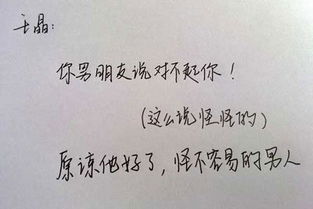 王晶：
你男朋友说对不起你！
（这么说怪怪的）
原谅他好了，怪不容易的男人